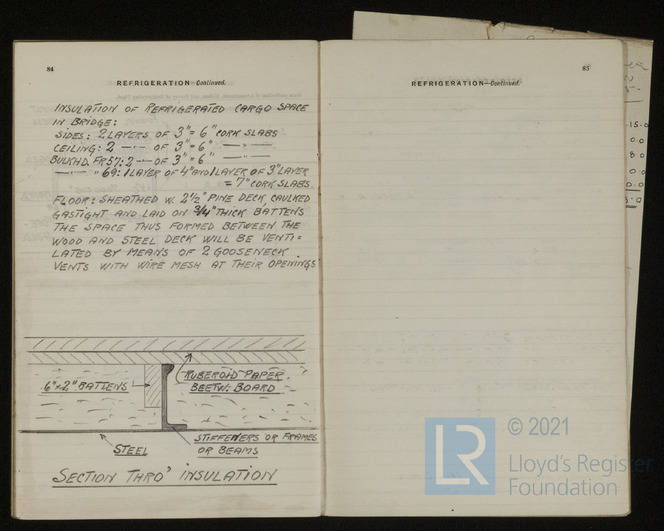 84
REFRIGERATION—Continued.
INSULATION OF REFRIGERATED CARGO SPACE
IN BRIDGE:
SIDES: 2 LAYERS OF 3" = 6" CORK SLABS
CEILING: 2 —"— OF 3" = 6" —"— —"—
BULKHD. FR 57: 2 —"— OF 3" = 6" —"— —"—
—"— " 69: 1 LAYER OF 4" AND 1 LAYER OF 3" LAYER
= 7" CORK SLABS.
FLOOR: SHEATHED W. 2½" PINE DECK, CAULKED
GASTIGHT AND LAID ON ¾" THICK BATTENS
THE SPACE THUS FORMED BETWEEN THE
WOOD AND STEEL DECK WILL BE VENTI=
LATED BY MEANS OF 2 GOOSENECK
VENTS WITH WIRE MESH AT THEIR OPENINGS
6"x2" BATTENS
RUBEROID PAPER
BEETW. BOARD
STEEL
STIFFENERS OR FRAMES
OR BEAMS
SECTION THRO' INSULATION
85
REFRIGERATION—Continued.
LR
© 2021
Lloyd's Register
Foundation